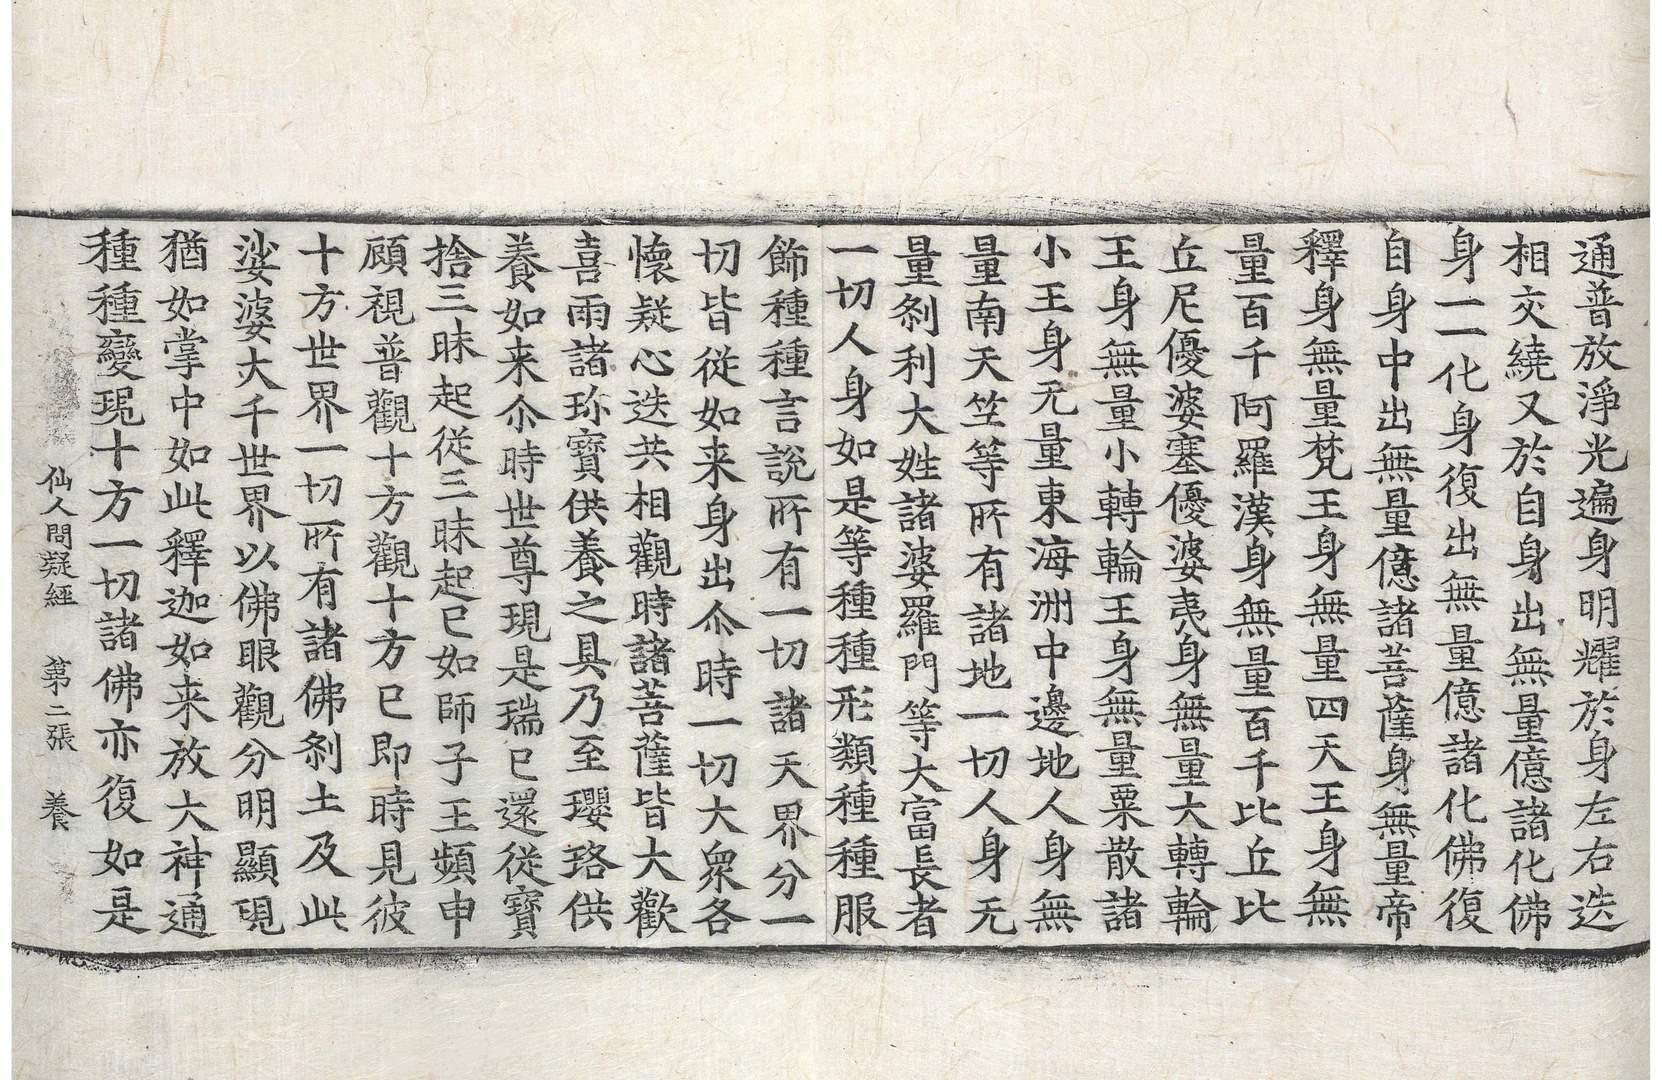 通普放淨光遍身明耀於身左右迭
相交繞又於自身出無量億諸化佛
身一一化身復出無量億諸化佛復
自身中出無量億諸菩薩身無量帝
釋身無量梵王身無量四天王身無
量百千阿羅漢身無量百千比丘比
丘尼優婆塞優婆夷身無量大轉輪
王身無量小轉輪王身無量粟散諸
小王身无量東海洲中邊地人身無
量南天竺等所有諸地一切人身无
量剎利大姓諸婆羅門等大富長者
一切人身如是等種種形類種種服
飾種種言說所有一切諸天界分一
切皆從如来身出尒時一切大衆各
懷疑心迭共相觀時諸菩薩皆大歡
喜雨諸珎寶供養之具乃至瓔珞供
養如来尒時世尊現是瑞已還從寶
捨三昧起從三昧起已如師子王頻申
顧視普觀十方觀十方已即時見彼
十方世界一切所有諸佛剎土及此
娑婆大千世界以佛眼觀分明顯現
猶如掌中如此釋迦如来放大神通
種種變現十方一切諸佛亦復如是
仙人問疑經 第二張 養